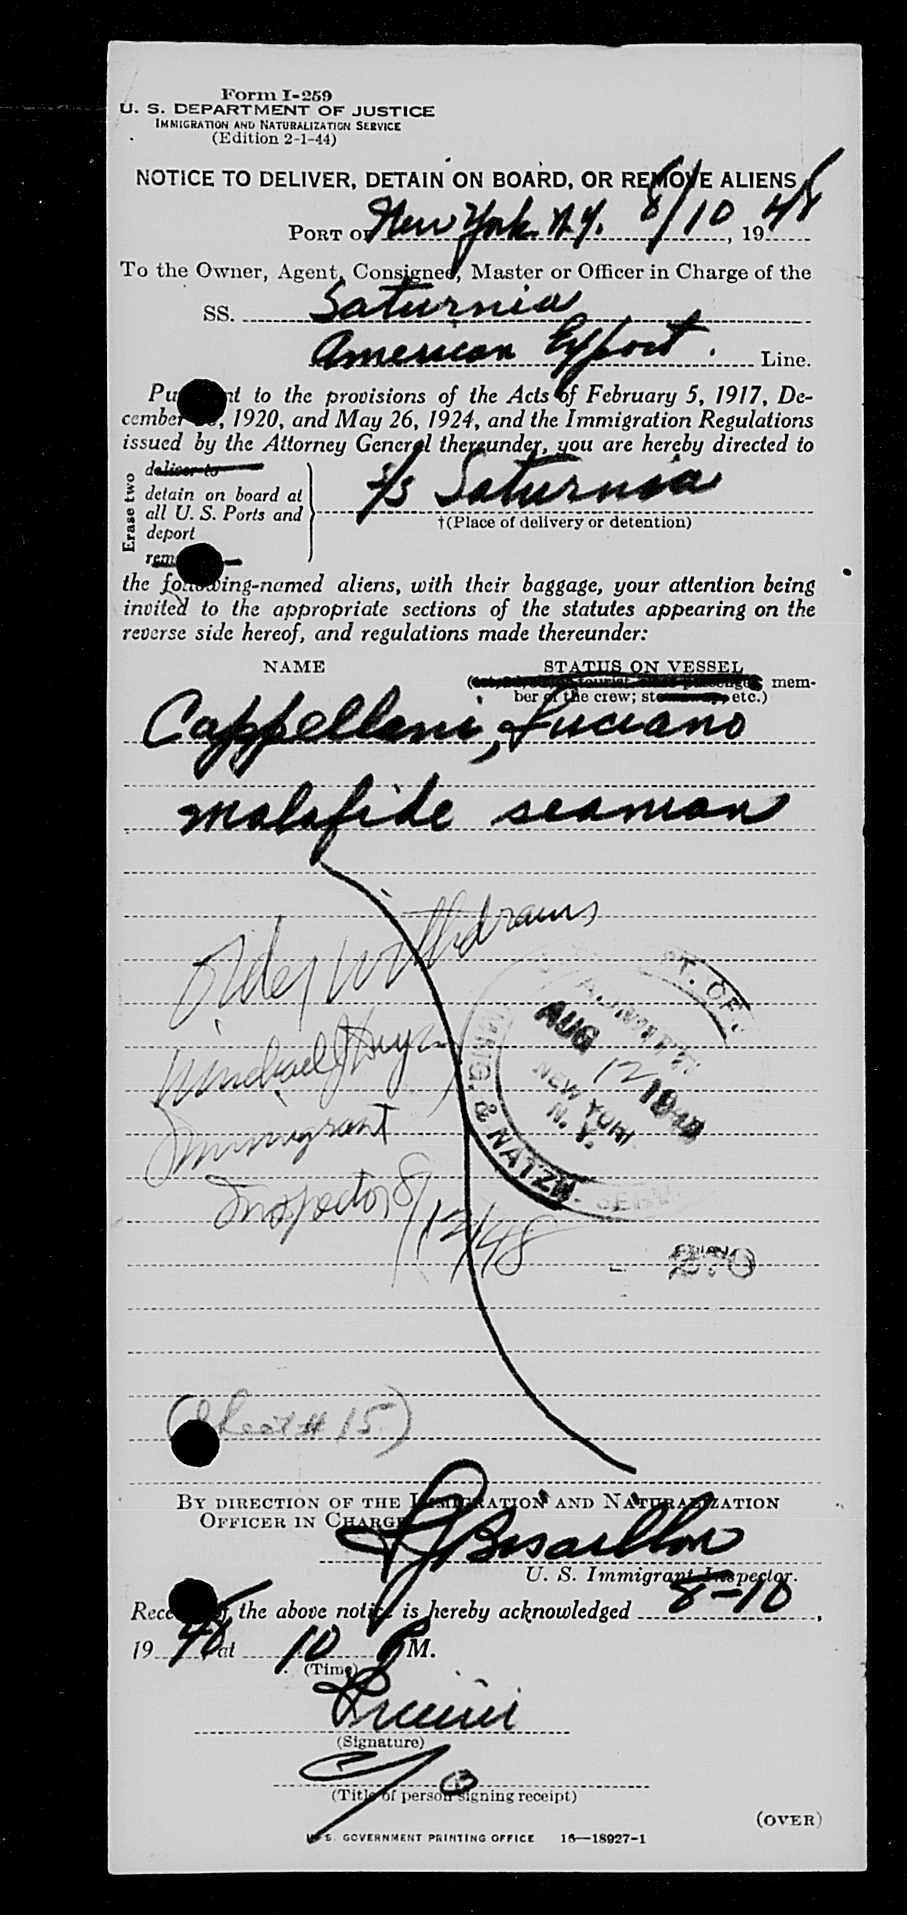 Form I-259
U. S. DEPARTMENT OF JUSTICE
IMMIGRATION AND NATURALIZATION SERVICE
(Edition 2-1-44)
NOTICE TO DELIVER, DETAIN ON BOARD, OR REMOVE ALIENS
PORT OF New York N.Y. 8/10, 1948
To the Owner, Agent, Consignee, Master or Officer in Charge of the
SS. Saturnia
American Export. Line.
to the provisions of the Acts of February 5, 1917, De-
cember 1920, and May 26, 1924, and the Immigration Regulations
issued by the Attorney General thereunder, you are hereby directed to
Erase two
deliver to
detain on board at
all U. S. Ports and
deport
s/s Saturnia
†(Place of delivery or detention)
the following-named aliens, with their baggage, your attention being
invited to the appropriate sections of the statutes appearing on the
reverse side hereof, and regulations made thereunder:
NAME STATUS ON VESSEL
mem-
ber of the crew; etc.)
Cappellani, Luciano
malafide seaman
Order Withdrawn
Immigrant
Inspector 8/12/48
ADMITTED
AUG 12 1948
NEW YORK
N. Y.
IMMIG. & NATZN. SERV.
270
(Sheet # 15)
BY DIRECTION OF THE IMMIGRATION AND NATURALIZATION
OFFICER IN CHARGE
U. S. Immigrant Inspector.
the above notice is hereby acknowledged 8-10,
1948 at 10 P M.
(Time)
(Signature)
C/O
(Title of person signing receipt)
(OVER)
U. S. GOVERNMENT PRINTING OFFICE 16—18927-1